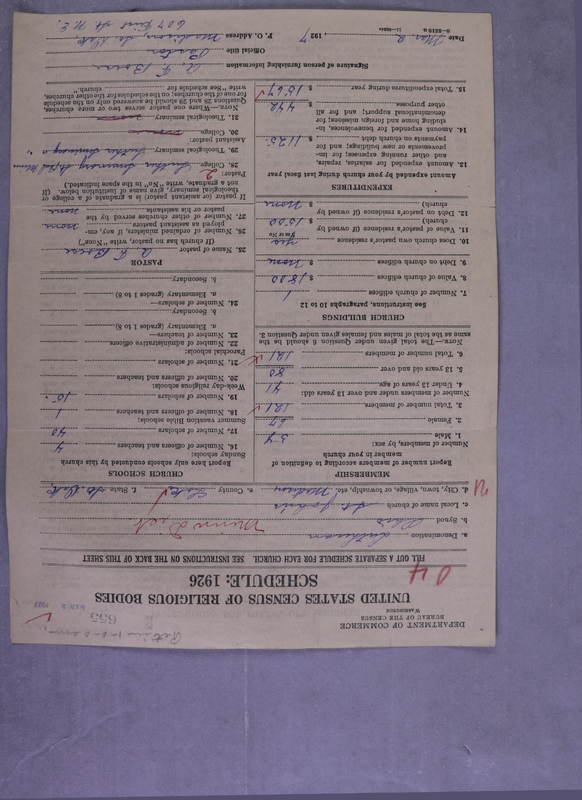 DEPARTMENT OF COMMERCE
BUREAU OF THE CENSUS
WASHINGTON
655
UNITED STATES CENSUS OF RELIGIOUS BODIES
SCHEDULE: 1926
FILL OUT A SEPARATE SCHEDULE FOR EACH CHURCH. SEE INSTRUCTIONS ON THE BACK OF THIS SHEET
a. Denomination Lutheran
b. Synod Ohio
c. Local name of church St Johns
d. City, town, village, or township, etc. Madison e. County Lake f. State So. Dak.
MEMBERSHIP
Report number of members according to definition of
member in your church
Number of members, by sex:
1. Male 54
2. Female 67
3. Total number of members 121
Number of members under and over 13 years old:
4. Under 13 years of age 41
5. 13 years old and over 80
6. Total number of members 121
NOTE.—The total given under Question 6 should be the
same as the total of males and females given under Question 3.
CHURCH BUILDINGS
See instructions, paragraphs 10 to 12
7. Number of church edifices 1
8. Value of church edifices $ 1800
9. Debt on church edifices $ None
10. Does church own pastor's residence Yes
Yes or No
11. Value of pastor's residence (if owned by
church) $ 1500
12. Debt on pastor's residence (if owned by
church) $ None
EXPENDITURES
Amount expended by your church during last fiscal year
13. Amount expended for salaries, repairs,
and other running expenses; for im-
provements or new building; and for
payments on church debt $ 1125
14. Amount expended for benevolences, in-
cluding home and foreign missions; for
denominational support; and for all
other purposes $ 442
15. Total expenditures during year $ 1567
CHURCH SCHOOLS
Report here only schools conducted by this church
Sunday schools:
16. Number of officers and teachers 4
17. Number of scholars 40
Summer vacation Bible schools:
18. Number of officers and teachers 1
19. Number of scholars 15
Week-day religious schools:
20. Number of officers and teachers
21. Number of scholars
Parochial schools:
22. Number of administrative officers
23. Number of teachers—
a. Elementary (grades 1 to 8)
b. Secondary
24. Number of scholars—
a. Elementary (grades 1 to 8)
b. Secondary
PASTOR
25. Name of pastor
(If church has no pastor, write "None")
26. Number of ordained ministers, if any, em-
ployed as assistant pastors none
27. Number of other churches served by the
pastor none
If pastor (or assistant pastor) is a graduate of a college or
theological seminary, give name of institution below. (If
not a graduate, write "No" in the space indicated.)
Pastor:
28. College
29. Theological seminary
Assistant pastor:
30. College none
31. Theological seminary none
NOTE.—Where one pastor serves two or more churches,
Questions 25 and 28 should be answered only on the schedule
for one of the churches; on the schedules for the other churches,
write "See schedule for church."
Signature of person furnishing information
Official title Pastor
P. O. Address Madison, So. Dak.
Date 1927